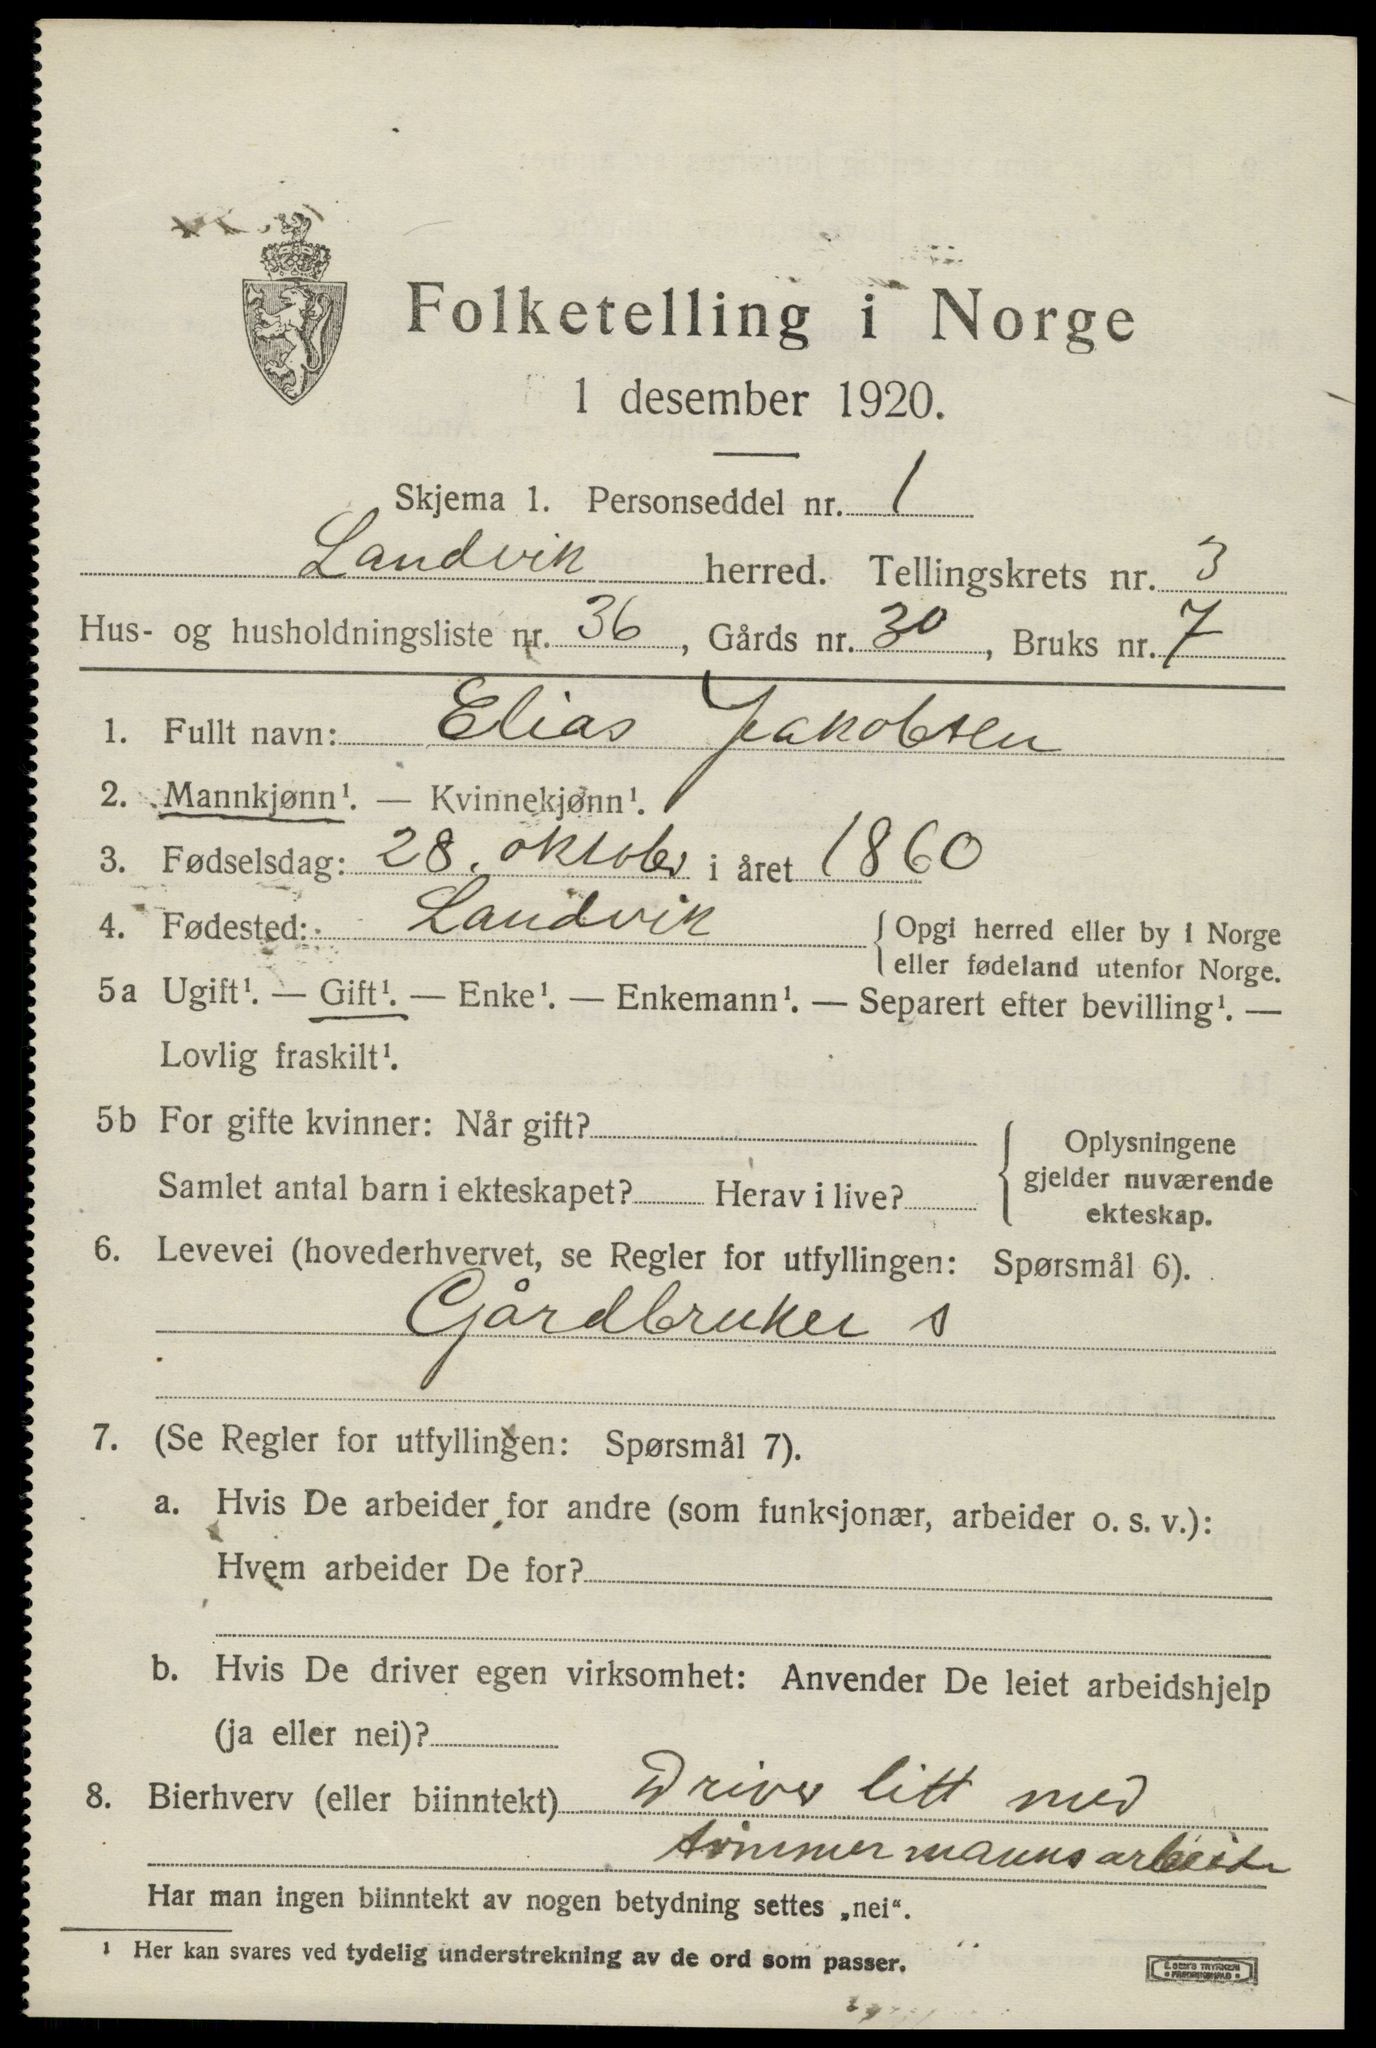 Folketelling i Norge
1 desember 1920.
Skjema 1. Personseddel nr. 1
Landvik herred. Tellingskrets nr. 3
Hus- og husholdningsliste nr. 36, Gårds nr. 30, Bruks nr. 7
1. Fullt navn: Elias Jakobsen
2. Mannkjønn¹. — Kvinnekjønn¹.
3. Fødselsdag: 28. oktober i året 1860
4. Fødested: Landvik { Opgi herred eller by i Norge
eller fødeland utenfor Norge.
5a Ugift¹. — Gift¹. — Enke¹. — Enkemann¹. — Separert efter bevilling¹. —
Lovlig fraskilt¹.
5b For gifte kvinner: Når gift?
Samlet antal barn i ekteskapet? Herav i live?
{ Oplysningene
gjelder nuværende
ekteskap.
6. Levevei (hovederhvervet, se Regler for utfyllingen: Spørsmål 6).
Gårdbruker s
7. (Se Regler for utfyllingen: Spørsmål 7).
a. Hvis De arbeider for andre (som funksjonær, arbeider o. s. v.):
Hvem arbeider De for?
b. Hvis De driver egen virksomhet: Anvender De leiet arbeidshjelp
(ja eller nei)?
8. Bierhverv (eller biinntekt) Driver litt med
tømmermannsarbeide
Har man ingen biinntekt av nogen betydning settes „nei“.
¹ Her kan svares ved tydelig understrekning av de ord som passer.